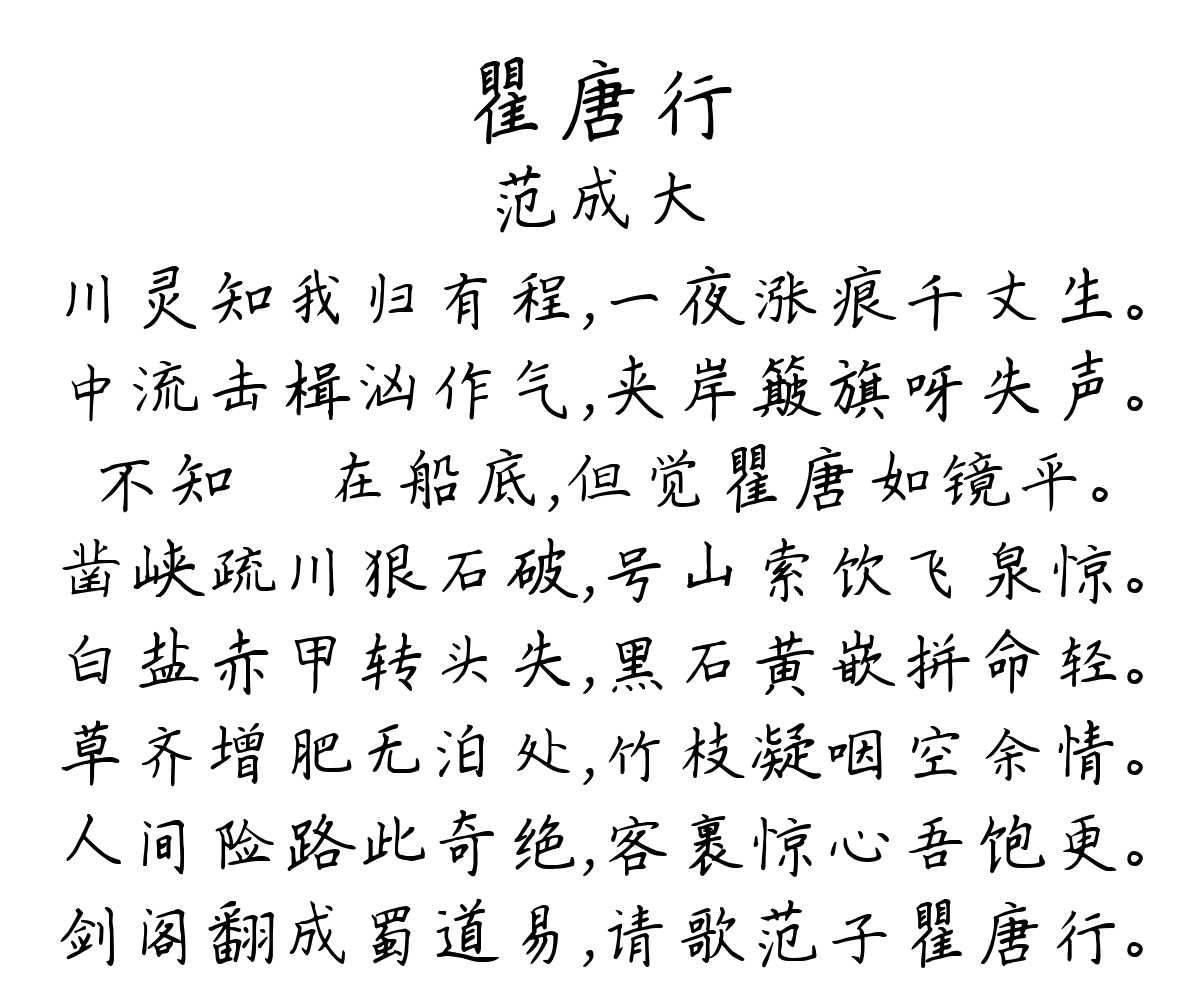 瞿唐行
范成大
川灵知我归有程,一夜涨痕千丈生。
中流击楫汹作气,夹岸簸旗呀失声。
不知 在船底,但觉瞿唐如镜平。
凿峡疏川狠石破,号山索饮飞泉惊。
白盐赤甲转头失,黑石黄嵌拼命轻。
草齐增肥无泊处,竹枝凝咽空余情。
人间险路此奇绝,客裹惊心吾饱更。
剑阁翻成蜀道易,请歌范子瞿唐行。